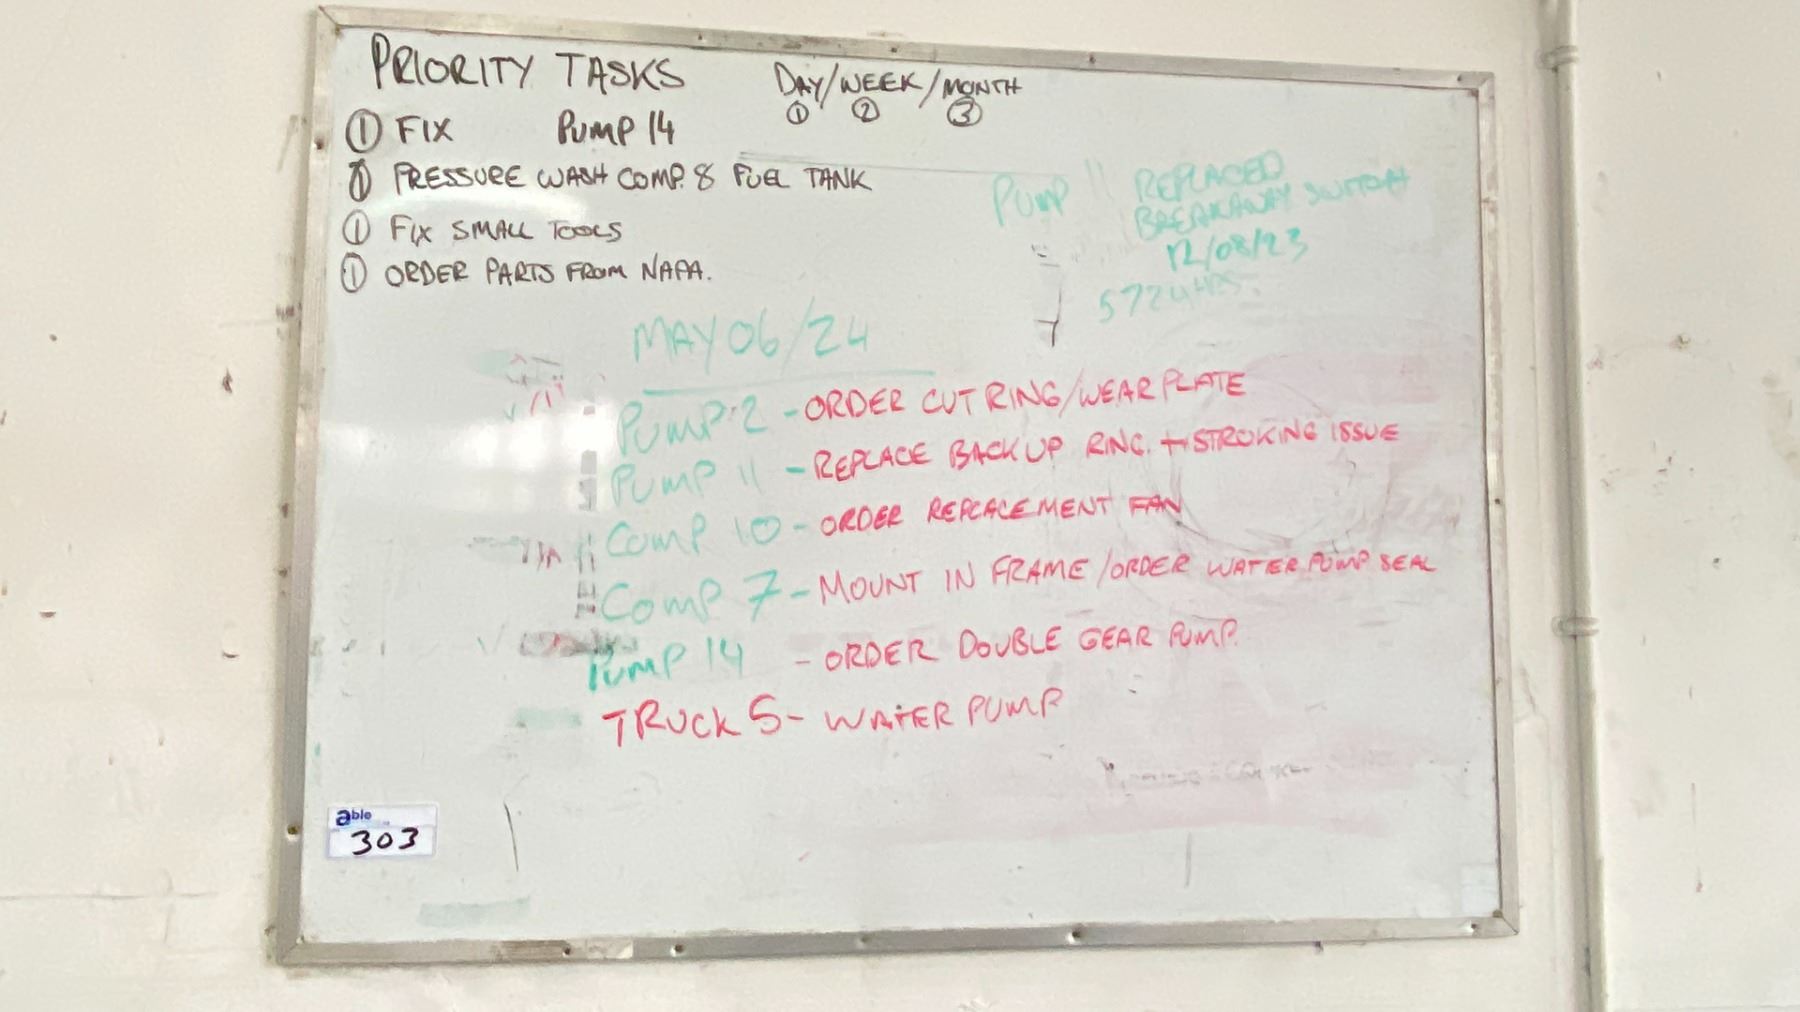 PRIORITY TASKS DAY/WEEK/MONTH
① ② ③
① FIX PUMP 14
① PRESSURE WASH COMP. 8 FUEL TANK
① FIX SMALL TOOLS
① ORDER PARTS FROM NAPA.
PUMP 11 REPLACED
BREAKAWAY SWITCH
12/08/23
5724 HRS.
MAY 06/24
PUMP 2 - ORDER CUT RING/WEAR PLATE
PUMP 11 - REPLACE BACK UP RING. + STROKING ISSUE
COMP 10 - ORDER REPLACEMENT FAN
COMP 7 - MOUNT IN FRAME/ORDER WATER PUMP SEAL
PUMP 14 - ORDER DOUBLE GEAR PUMP.
TRUCK 5 - WATER PUMP
able
303